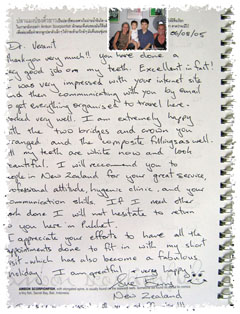 06/08/05
Dr. Vesnil
Thank you very much!! You have done a
very good job on my teeth. Excellent in fact!
I was very impressed with your internet site
and then communicating with you by email
to get everything organised to travel here.
worked very well. I am extremely happy
with the two bridges and crown you
arranged and the composite fillings as well.
teeth are white now and look
beautiful. I will recommend you to
people in New Zealand for your great service,
professional attitude, hygenic clinic, and your
communication skills. If I need other
work done I will not hesitate to return
to you here in Phuket.
I appreciate your efforts to have all the
appointments done to fit in with my short
visit - which has also become a fabulous
holiday. I am greatful + very happy
New Zealand